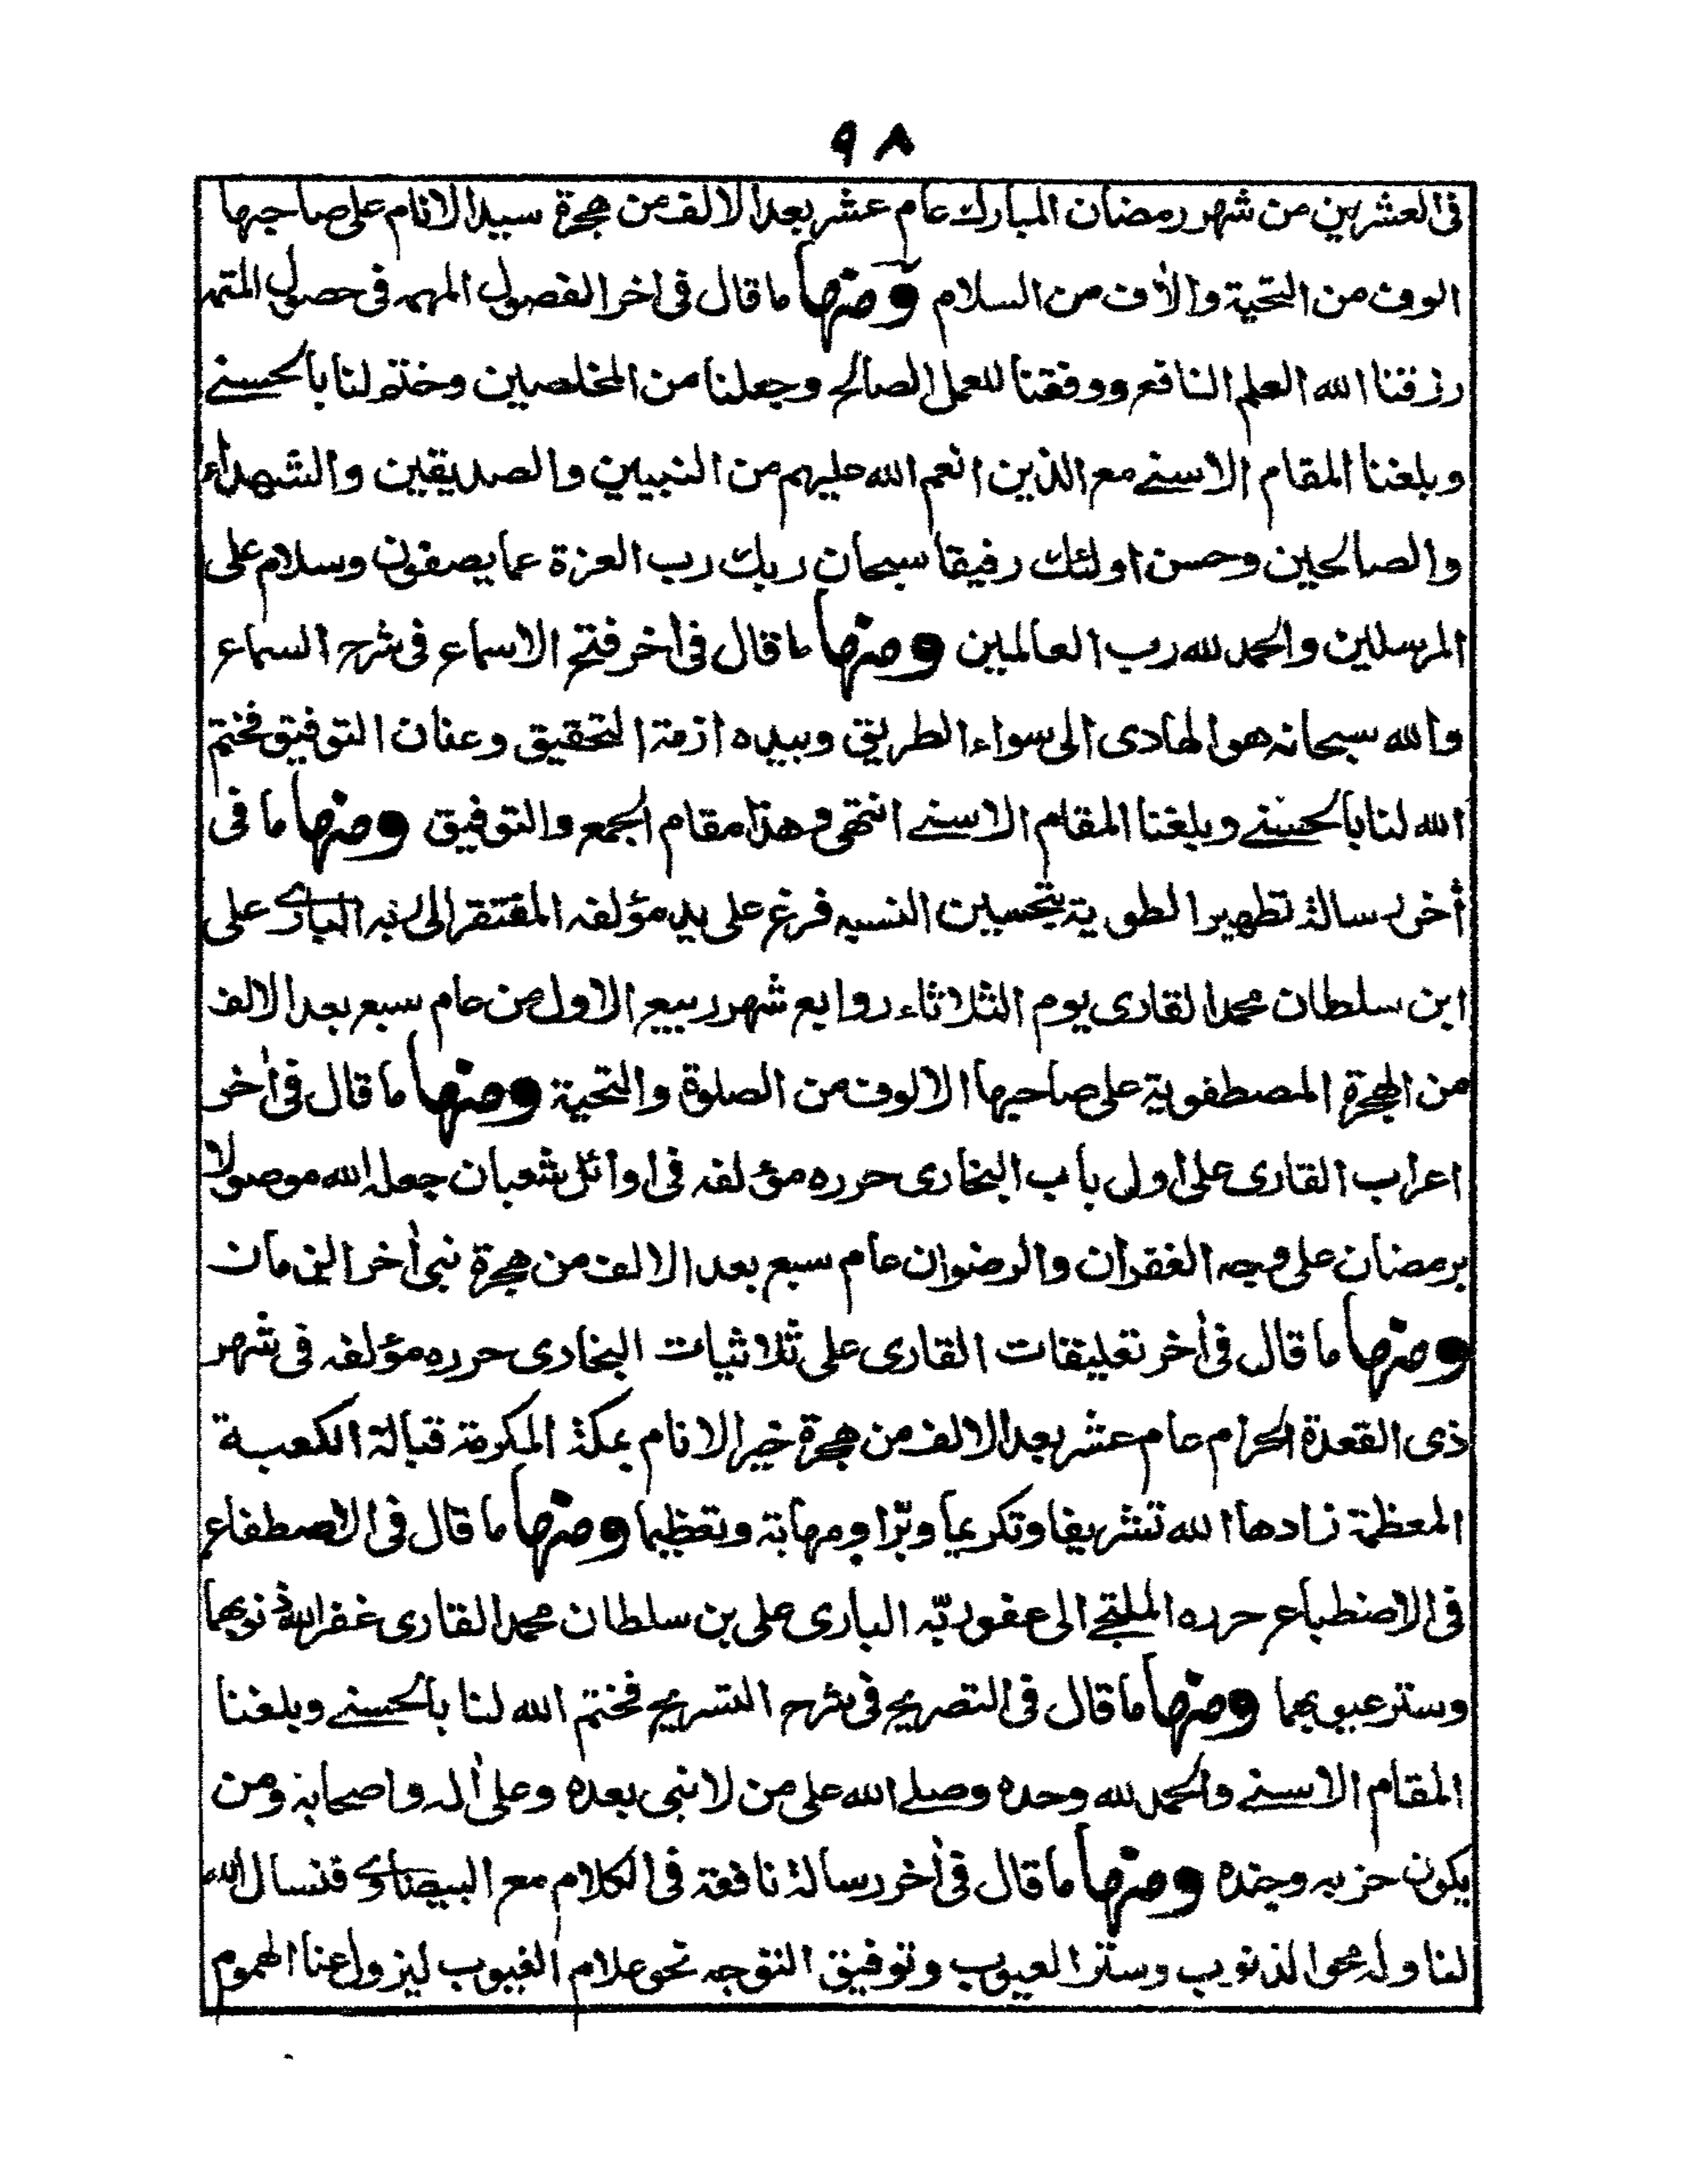 ٩٨
فى العشرين من شهر رمضان المبارك عام عشر بعد الالف من هجرة سيد الانام على صاحبها
الوف من التحية والاف من السلام ومنها ما قال فى اخر الفصول المهمه فى حصول المتمه
رزقنا الله العلم النافع ووفقنا للعمل الصالح وجعلنا من المخلصين وختم لنا بالحسنے
وبلغنا المقام الاسنے مع الذين انعم الله عليهم من النبيين والصديقين والشهداء
والصالحين وحسن اولئك رفيقا سبحان ربك رب العزة عما يصفون وسلام على
المرسلين والحمد لله رب العالمين ومنها ما قال فى أخر فتح الاسماع فى شرح السماع
والله سبحانه هو الهادى الى سواء الطريق وبيده ازمة التحقيق وعنان التوفيق فختم
الله لنا بالحسنے وبلغنا المقام الاسنے انتهى وهذا مقام الجمع والتوفيق ومنها ما فى
أخر رسالة تطهير الطوية بتحسين النسيه فرغ على يد مؤلفه المفتقر الى ربه البارے على
ابن سلطان محمد القارى يوم الثلاثاء روابع شهر ربيع الاول من عام سبع بعد الالف
من الهجرة المصطفوية على صاحبها الالوف من الصلوة والتحية ومنها ما قال فى أخر
اعراب القارى على اول باب البخارى حرره مؤلفه فى اوائل شعبان جعله الله موصولا
برمضان على وجه الغفران والرضوان عام سبع بعد الالف من هجرة نبى أخر الزمان
ومنها ما قال فى أخر تعليقات القارى على ثلاثيات البخارى حرره مؤلفه فى شهر
ذى القعدة الحرام عام عشر بعد الالف من هجرة خير الانام بمكة المكرمة قبالة الكعبة
المعظمة زادها الله تشريفا وتكريما وبرّا ومهابة وتعظيما ومنها ما قال فى الاصطفاع
فى الاضطباع حرره الملتجے الى عفو ربّه البارى على بن سلطان محمد القارى غفر الله ذنوبهما
وستر عيوبهما ومنها ما قال فى التصريح فى شرح التسريح فختم الله لنا بالحسنے وبلغنا
المقام الاسنے والحمد لله وحده وصلے الله على من لا نبى بعده وعلى أله واصحابه ومن
يكون حزبه وجنده ومنها ما قال فى أخر رسالة نافعة فى الكلام مع البيضاوے فنسال الله
لنا وله محوا لذنوب وستر العيوب وتوفيق التوجه نحو علام الغيوب ليزول عنا الهموم